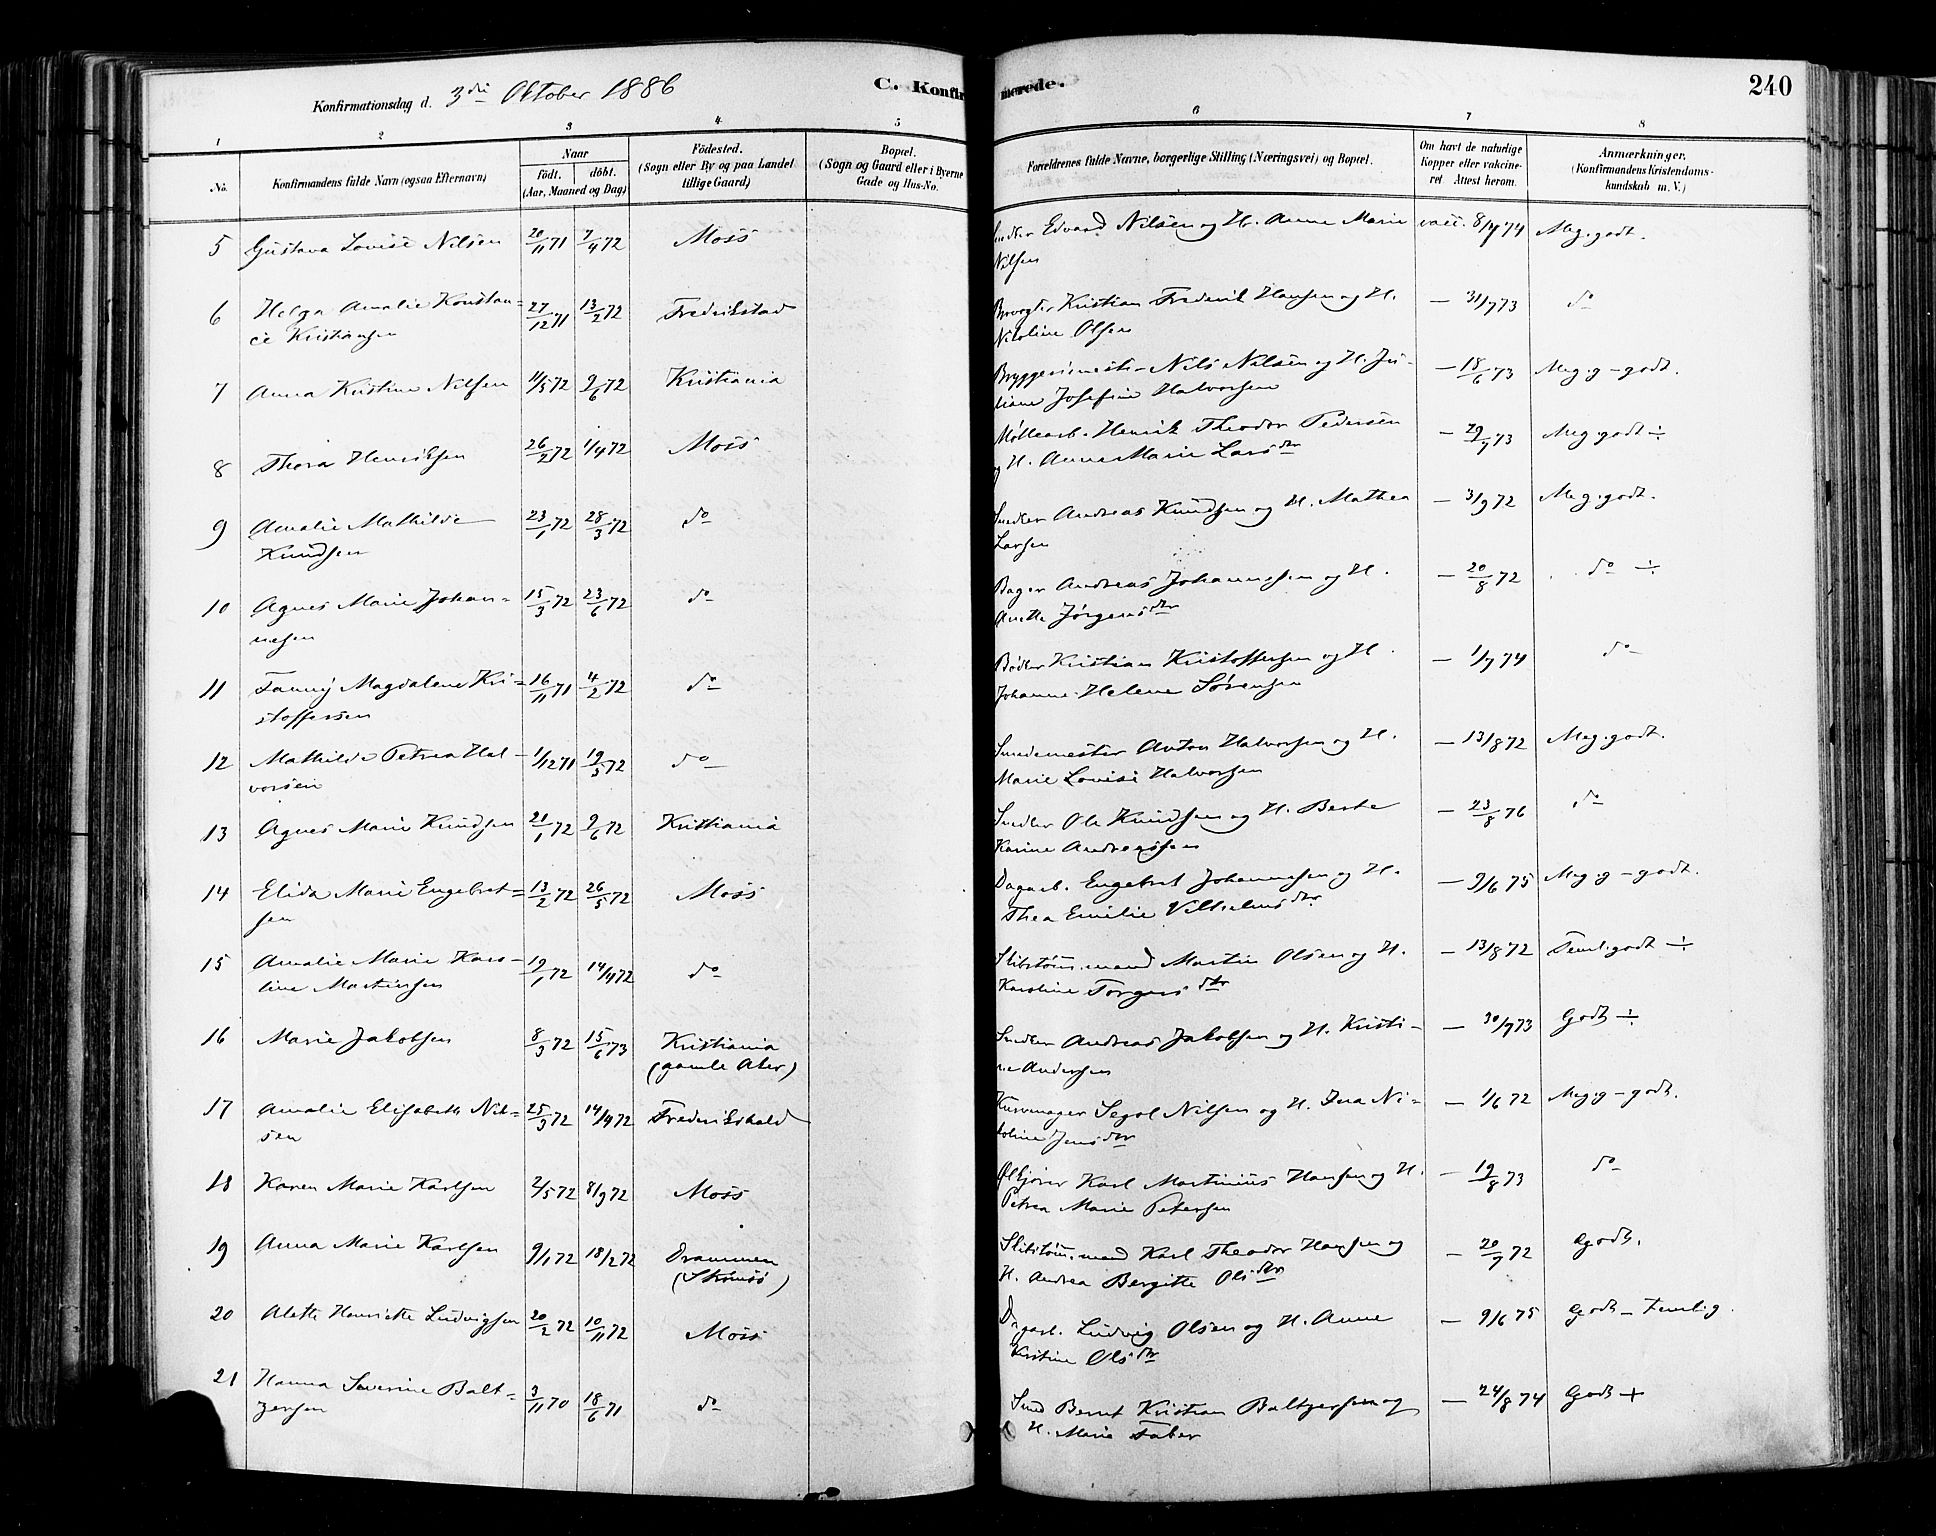 Konfirmationsdag d. 3die Oktober 1886
C. Konfirmerede.
240
1 2 3 4 5 6 7 8
No.
Konfirmandens fulde Navn (ogsaa Efternavn)
Naar
födt. döbt.
(Aar, Maaned og Dag)
Födested.
(Sogn eller By og paa Landet
tillige Gaard)
Bopæl.
(Sogn og Gaard eller i Byerne
Gade og Hus-No.
Forældrenes fulde Navne, borgerlige Stilling (Næringsvei) og Bopæl.
Om havt de naturlige
Kopper eller vakcine-
ret Attest herom.
Anmærkninger.
(Konfirmandens Kristendoms-
kundskab m. V.)
5 Gustava Lovise Nilsen 20/11 71 7/4 72 Moss Snedker Edvard Nilsen og H. Anne Marie vacc. 8/7 74 Meg. godt.
Nilsen
6 Helga Amalie Konstan= 27/12 71 13/2 72 Fredrikstad Kristian Frederik Hansen og H. — 31/7 73 do
ce Kristiansen Nikoline Olsen
7 Anna Kristine Nilsen 11/5 72 9/6 72 Kristiania Bryggerimester Nils Nilsen og H. Ju= — 18/6 73 Meg. g — godt.
liane Josefine Halvorsen
8 Thora Henriksen 26/2 72 1/4 72 Moss Møllearb. Henrik Theodor Pedersen — 29/7 73 Meg. godt ÷
og H. Anne Marie Larsdtr
9 Amalie Mathilde 23/1 72 28/3 72 do Snedker Andreas Knudsen og H. Mathea — 3/9 72 Meg. godt.
Knudsen Larsen
10 Agnes Marie Johan= 15/3 72 23/6 72 do Bager Andreas Johannesen og H. — 20/8 72 do ÷
nesen Anette Jørgensdtr
11 Fanny Magdalene Kri= 16/11 71 4/2 72 do Bødker Kristian Kristoffersen og H. — 1/7 74 do
stoffersen Johanne Helene Sørensen
12 Mathilde Petrea Hal= 1/12 71 19/5 72 do Smedemester Anton Halvorsen og H. — 13/8 72 Meg. godt.
vorsen Marie Lovise Halvorsen
13 Agnes Marie Knudsen 21/1 72 9/6 72 Kristiania Snedker Ole Knudsen og H. Berte — 23/8 76 do
Karine Andreassen
14 Elida Marie Engebret= 13/2 72 26/5 72 Moss Dagarb. Engebret Johannesen og H. — 9/6 75 Meg. g — godt.
sen Thea Emilie Vilhelmsdtr
15 Amalie Marie Karo= 19/1 72 14/4 72 do Slibstøm.mand Martin Olsen og H. — 13/8 72 Teml. godt ÷
line Martinsen Karoline Torgersdtr
16 Marie Jakobsen 8/3 72 15/6 73 Kristiania Snedker Andreas Jakobsen og H. Kristi= — 30/7 73 Godt ÷
(gamle Aker) ne Andersen
17 Amalie Elisabeth Nil= 25/3 72 14/4 72 Frederikshald Kurvmager Segol Nilsen og H. Ina Ni= — 1/6 72 Meg. g — godt.
sen koline Jensdtr
18 Karen Marie Karlsen 2/5 72 8/9 72 Moss Ølkjører Karl Martinius Hansen og H. — 19/8 73 do
Petrea Marie Petersen
19 Anna Marie Karlsen 9/1 72 18/2 72 Drammen Slibstøm.mand Karl Theodor Hansen og — 20/7 72 Godt.
(Strømsø) H. Andrea Bergitte Olsdtr
20 Alette Henriette Ludvigsen 20/2 72 10/11 72 Moss Dagarb. Ludvig Olsen og H. Anne — 9/6 75 Godt — Temlig.
Kristine Olsdtr
21 Hanna Severine Balt= 3/11 70 18/6 71 do Smed Bernt Kristian Baltzersen og — 24/8 74 Godt +
zersen H. Marie Faber